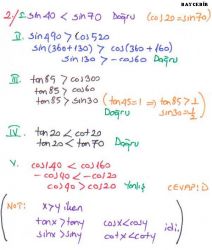 BAYCEBIR
2/ I. sin40 < sin70 Doğru (cos20=sin70)
II. sin490 > cos520
sin(360+130) > cos(360+160)
sin130 > -cos60 Doğru
III. tan85 > cos300
tan85 > cos60
tan85 > sin30 (tan45=1 ⇒ tan85 > 1/2
sin30=1/2) Doğru
IV. tan20 < cot20
tan20 < tan70 Doğru
V. cos140 < cos160
-cos40 < -cos20
cos40 > cos20 Yanlış CEVAP: D
NOT: x>y iken
tanx > tany cosx < cosy
sinx > siny cotx < coty idi.